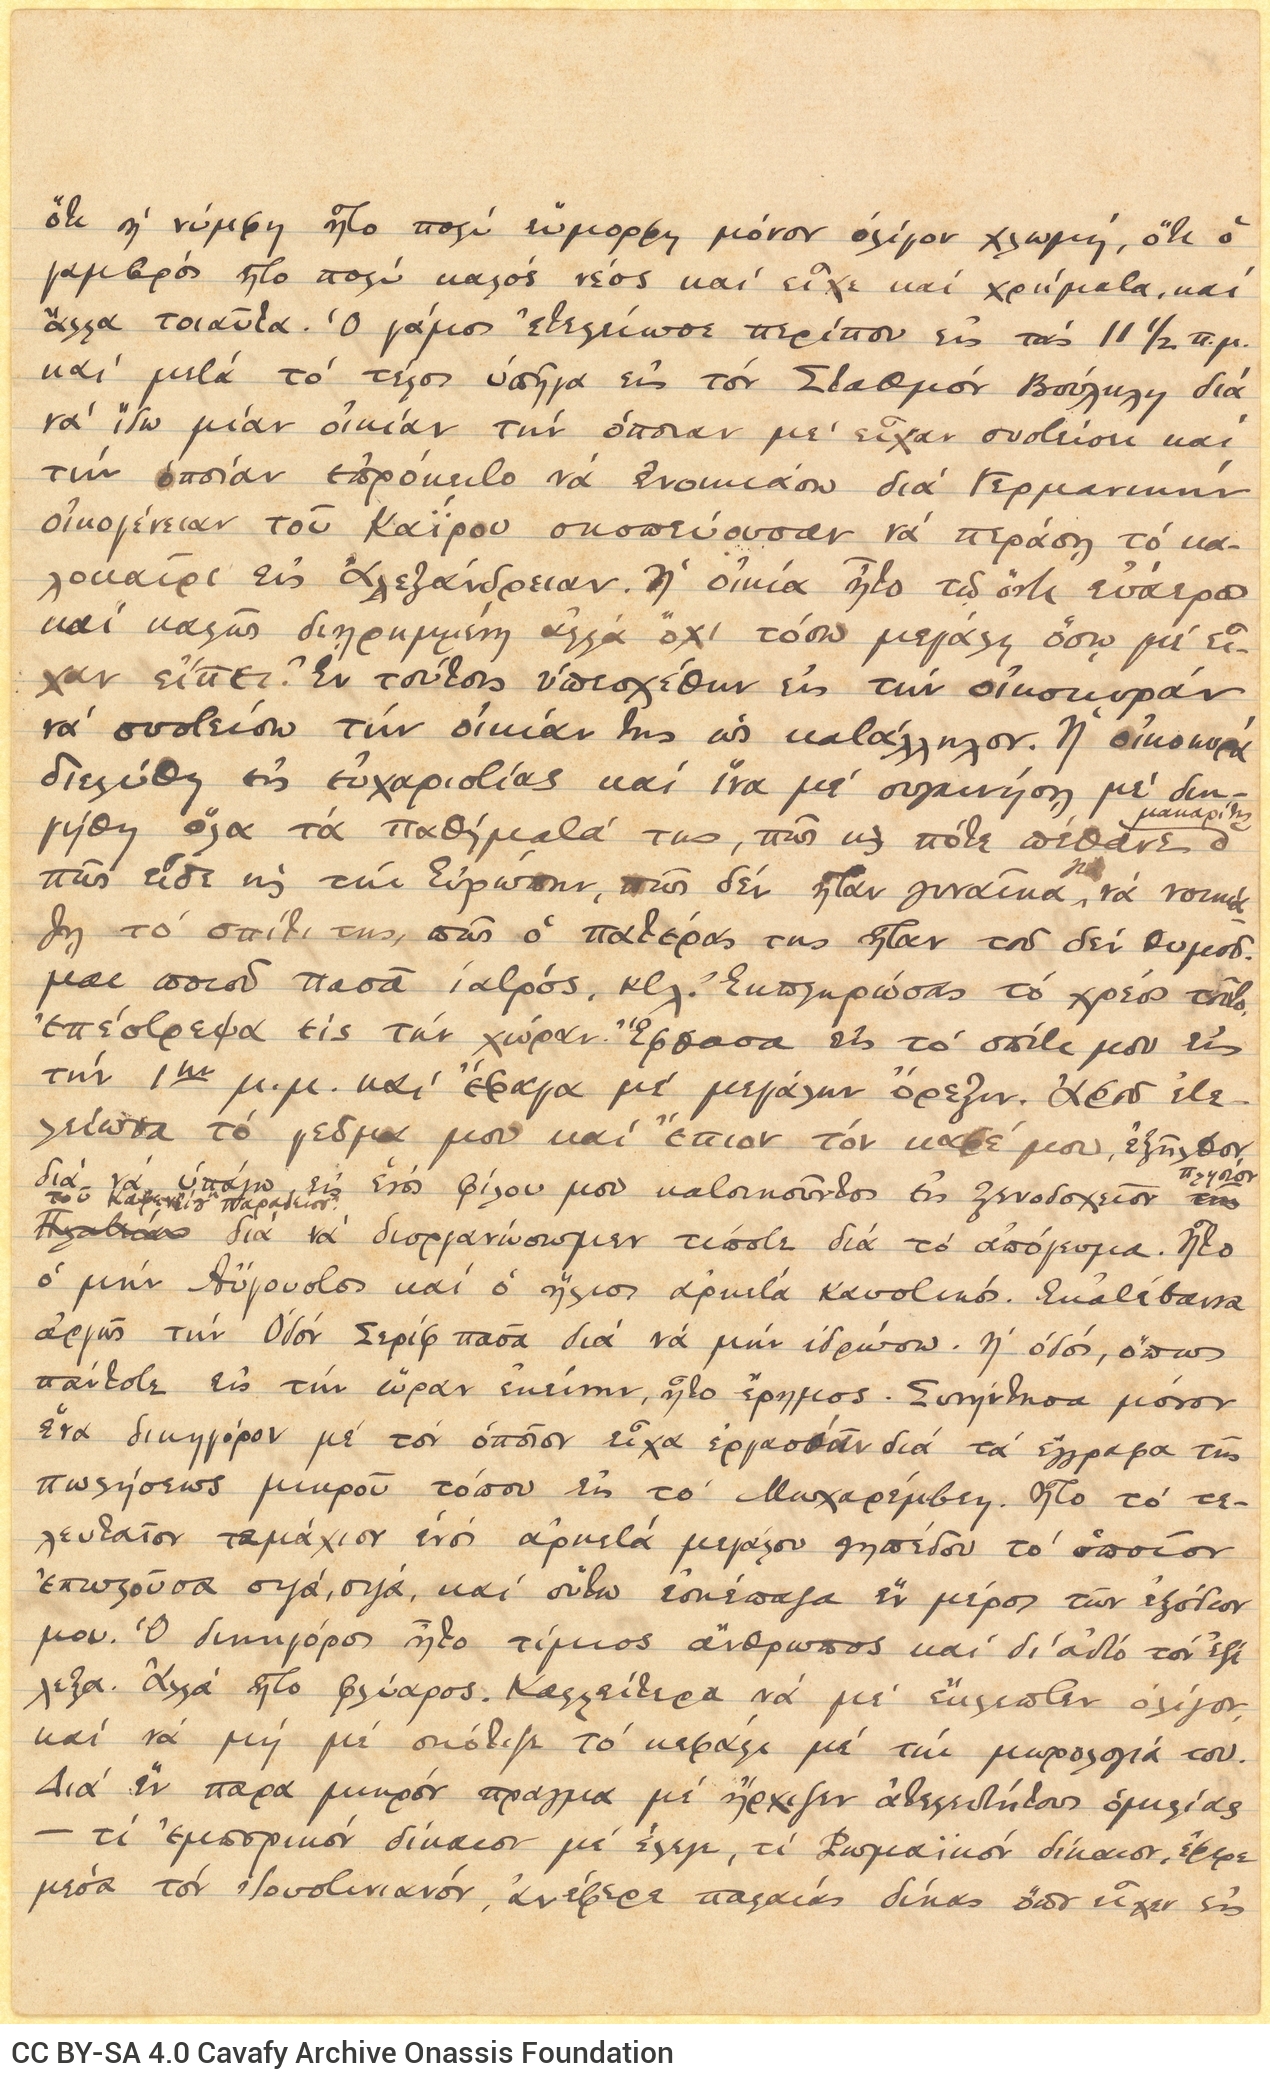 ὅτι ἡ νύμφη ἦτο πολύ εὔμορφη μόνον ὀλίγον χλωμή, ὅτι ὁ
γαμβρός ἦτο πολύ καλός νέος καί εἶχε καί χρήματα, καί
ἄλλα τοιαῦτα. Ὁ γάμος ἐτελείωσε περίπου εἰς τάς 11 1/2 π.μ.
καί μετά τό τέλος ὑπῆγα εἰς τόν Σταθμόν Βούλκλη διά
νά ἴδω μίαν οἰκίαν τήν ὁποίαν μέ εἶχαν συστείσει καί
τήν ὁποίαν ἐπρόκειτο νά ἐνοικιάσω διά Γερμανικήν
οἰκογένειαν τοῦ Καΐρου σκοπεύουσαν νά περάσῃ τό κα-
λοκαῖρι εἰς Ἀλεξάνδρειαν. Ἡ οἰκία ἦτο τῷ ὄντι εὐάερος
καί καλῶς διῃρημμένη ἀλλά ὄχι τόσῳ μεγάλη ὅσῳ μέ εἶ-
χαν εἴπει. Ἐν τούτοις ὑπεσχέθην εἰς τήν οἰκοκυράν
νά συστείσω τήν οἰκίαν της ὡς κατάλληλον. Ἡ οἰκοκυρά
διελύθη εἰς εὐχαριστίας καί ἵνα μέ συγκινήσῃ μέ διη-
γήθη ὅλα τά παθήματά της, πῶς κ̀ πότε πέθανε ὁ
μακαρίτης
πῶς εἶδε κ̀ τήν Εὐρώπην, πῶς δέν ἦταν γυναῖκα γιά νά νοικιά
ζῃ τό σπίτι της, πῶς ὁ πατέρας της ἦταν τοῦ δέν θυμοῦ-
μαι ποιοῦ πασᾶ ἰατρός, κτλ. Ἐκπληρώσας τό χρέος τοῦτο,
ἐπέστρεψα εἰς τήν χώραν. Ἔφθασα εἰς τό σπίτι μου εἰς
τήν 1ην μ.μ. καί ἔφαγα μέ μεγάλην ὄρεξιν. Ἀφοῦ ἐτε-
λείωσα τό γεῦμα μου καί ἔπιον τόν καφέ μου, ἐξῆλθον
διά νά ὑπάγω εἰς ἑνός φίλου μου κατοικοῦντος εἰς ξενοδοχεῖον πλησίον της
τοῦ Καφενείου "Παραδείσου"
Πλατείας διά νά διοργανώσωμεν τίποτε διά τό ἀπόγευμα. Ἦτο
ὁ μήν Αὔγουστος καί ὁ ἥλιος ἀρκετά καυστικός. Ἐκατέβαινα
ἀργῶς τήν Ὁδόν Σερίφ πασᾶ διά νά μήν ἱδρώσω. Ἡ ὁδός, ὅπως
πάντοτε εἰς τήν ὥραν ἐκείνην, ἦτο ἔρημος. Συνήντησα μόνον
ἕνα δικηγόρον μέ τόν ὁποῖον εἶχα ἐργασθῆν διά τά ἔγγραφα τῆς
πωλήσεως μικροῦ τόπου εἰς τό Μωχαρέμβεη. Ἦτο τό τε-
λευταῖον τεμάχιον ἑνός ἀρκετά μεγάλου γηπέδου τό ὁποῖον
ἐπωλοῦσα σιγά, σιγά, καί οὕτω ἐσκέπαζα ἕν μέρος τῶν ἐξόδων
μου. Ὁ δικηγόρος ἦτο τίμιος ἄνθρωπος καί δι' αὐτό τόν ἐξέ
λεξα. Ἀλλά ἦτο φλύαρος. Καλλείτερα νά μέ ἔκλεπτεν ὀλίγον,
καί νά μή μέ σκότιζε τό κεφάλι μέ τήν μωρολογιά του.
Διά ἕν παρα μικρόν πρᾶγμα μέ ἤρχιζεν ἀτελευτήτους ὁμιλίας
— τί ἐμπορικόν δίκαιον μέ ἔλεγε, τί Ρωμαϊκόν δίκαιον, ἔφερε
μέσα τόν Ἰουστινιανόν, ἀνέφερε παλαιάς δίκας ὅπου εἶχεν εἰς
CC BY-SA 4.0 Cavafy Archive Onassis Foundation